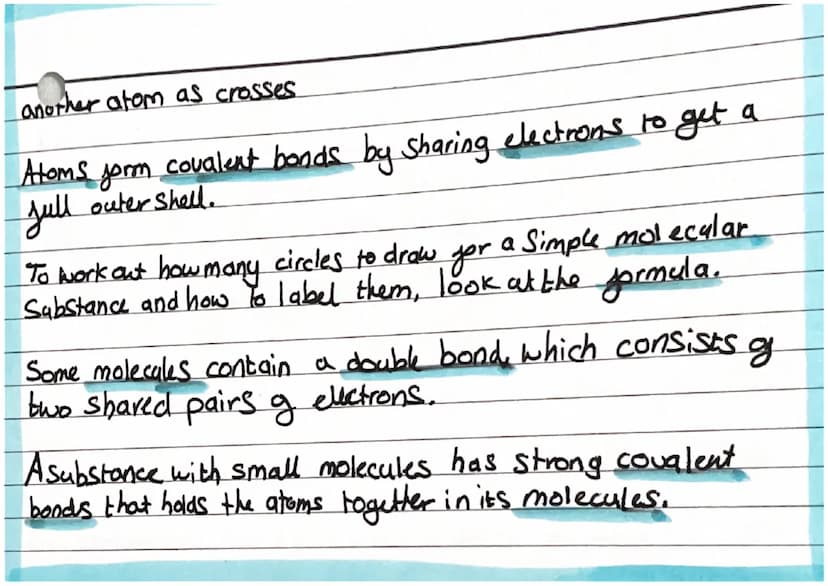 another atom as crosses
Atoms form covalent bonds by sharing electrons to get a
full outer shell.
To work out how many circles to draw for a simple molecular
substance and how to label them, look at the formula.
Some molecules contain a double bond, which consists of
two shared pairs of electrons.
A substance with small molecules has strong covalent
bonds that holds the atoms together in its molecules.